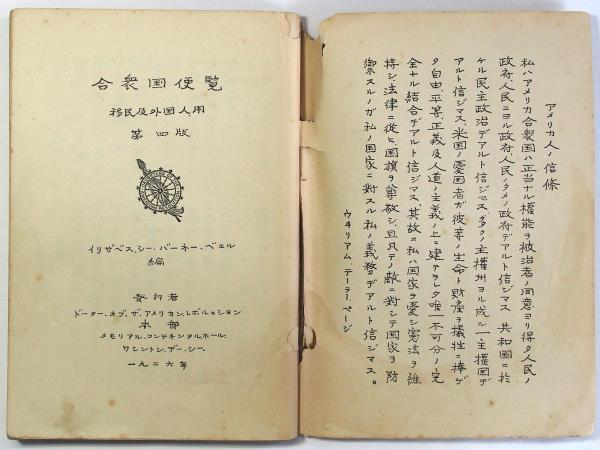 合衆国便覧
移民及外国人用
第四版
イリザベス、シー、バーネー、ベェル
編
発行者
ドーター、オブ、ザ、アメリカン、レボルョション
本部
メモリアル、コンテネンタル、ホール、
ワシントン、デー、シー、
一九二六年
アメリカ人ノ信條
私ハアメリカ合衆国ハ正当ナル權能ヲ被治者ノ同意ヨリ得タ人民ノ
政府、人民ニヨル政府、人民ノタメノ政府デアルト信ジマス 共和國ニ於
ケル民主政治デアルト信ジマス、多クノ主權州ヨル成ル一主權国デ
アルト信ジマス、米国ノ憂国者ガ彼等ノ生命ト財産ヲ犠牲ニ捧ゲ
タ自由、平等、正義及人道ノ主義ノ上ニ建テラレタ唯一不可分ノ完
全ナル結合デアルト信ジマス、其故ニ私ハ国家ヲ愛シ憲法ヲ維
持シ、法律ニ從ヒ、国旗ヲ尊敬シ、且凡テノ敵ニ対シテ国家ヲ防
禦スルノガ私ノ国家ニ對スル私ノ義務デアルト信ジマス。
ウヰリアム、テーラー、ページ